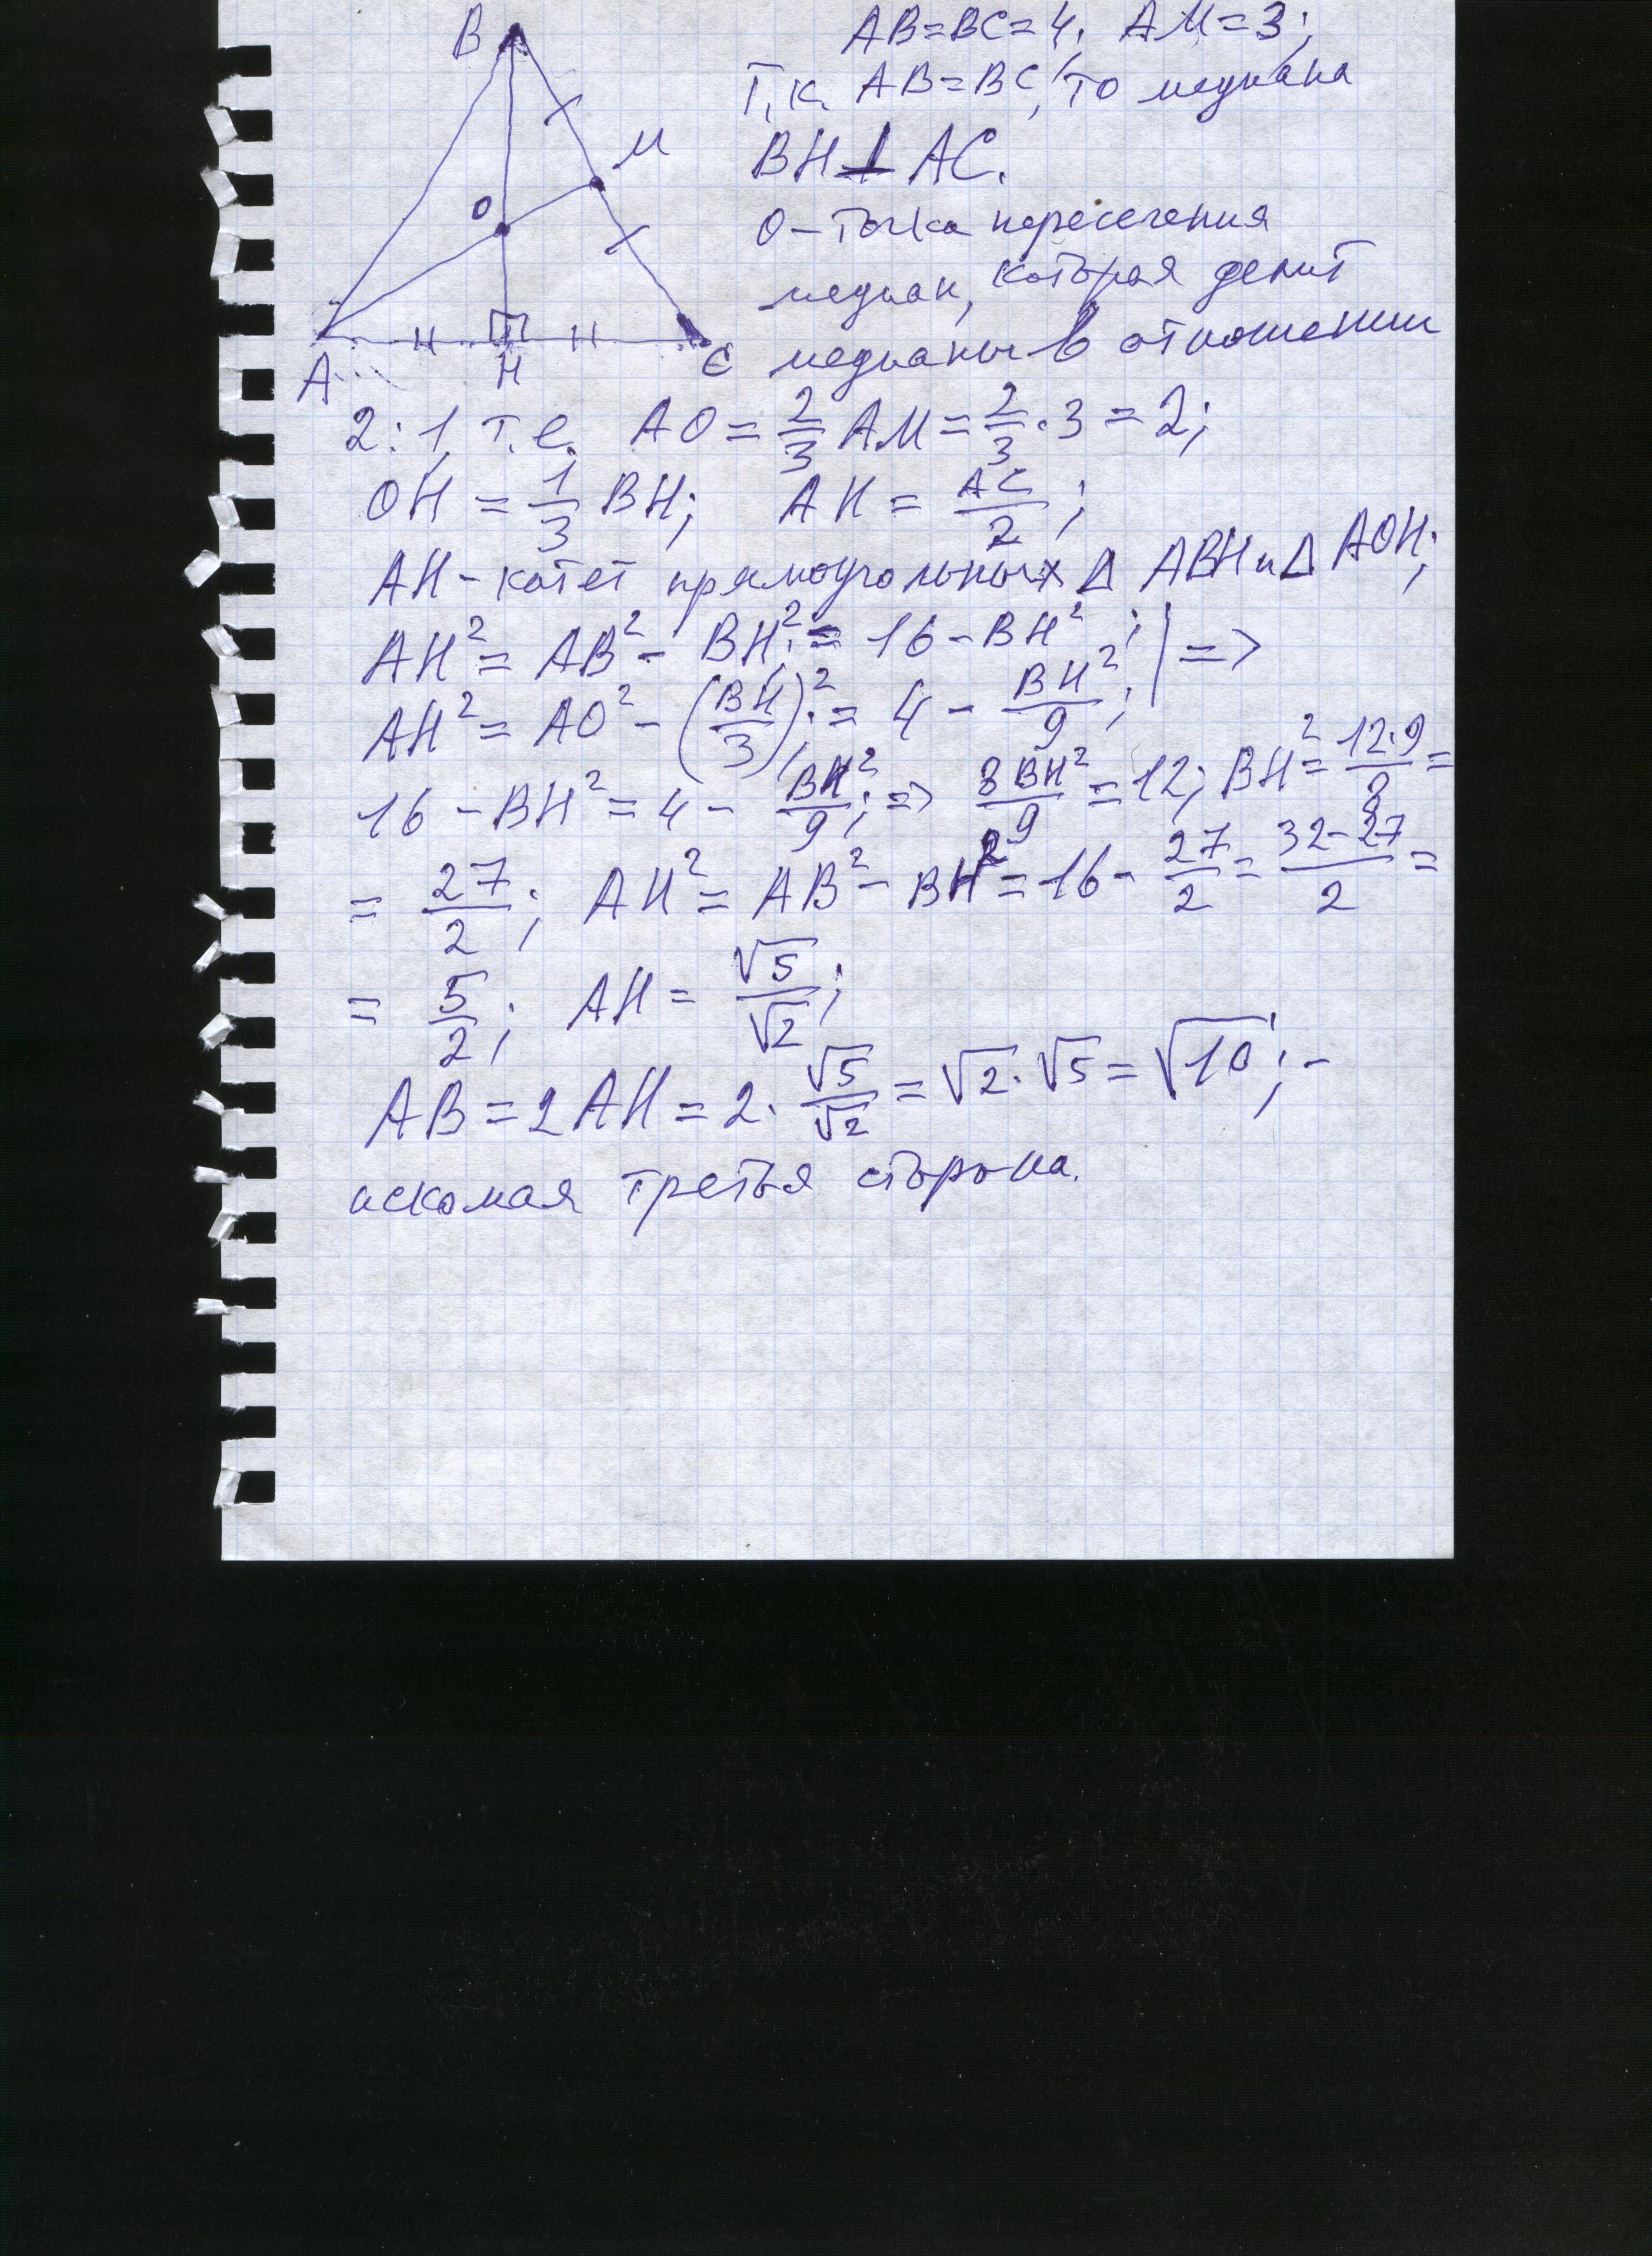 B
M
O
A
H
C
AB=BC=4; AM=3;
Т.к. AB=BC, то медиана
BH⊥AC.
O – точка пересечения
медиан, которая делит
медианы в отношении
2:1, т.е. AO = 2/3 AM = 2/3 · 3 = 2;
OH = 1/3 BH; AH = AC/2;
AH – катет прямоугольных Δ ABH и Δ AOH;
AH² = AB² – BH² = 16 – BH²; | =>
AH² = AO² – (BH/3)² = 4 – BH²/9;
16 – BH² = 4 – BH²/9; => 8BH²/9 = 12; BH² = 12·9/8 =
= 27/2; AH² = AB² – BH² = 16 – 27/2 = 32–27/2 =
= 5/2; AH = √5/√2;
AB = 2AH = 2 · √5/√2 = √2 · √5 = √10; –
искомая третья сторона.